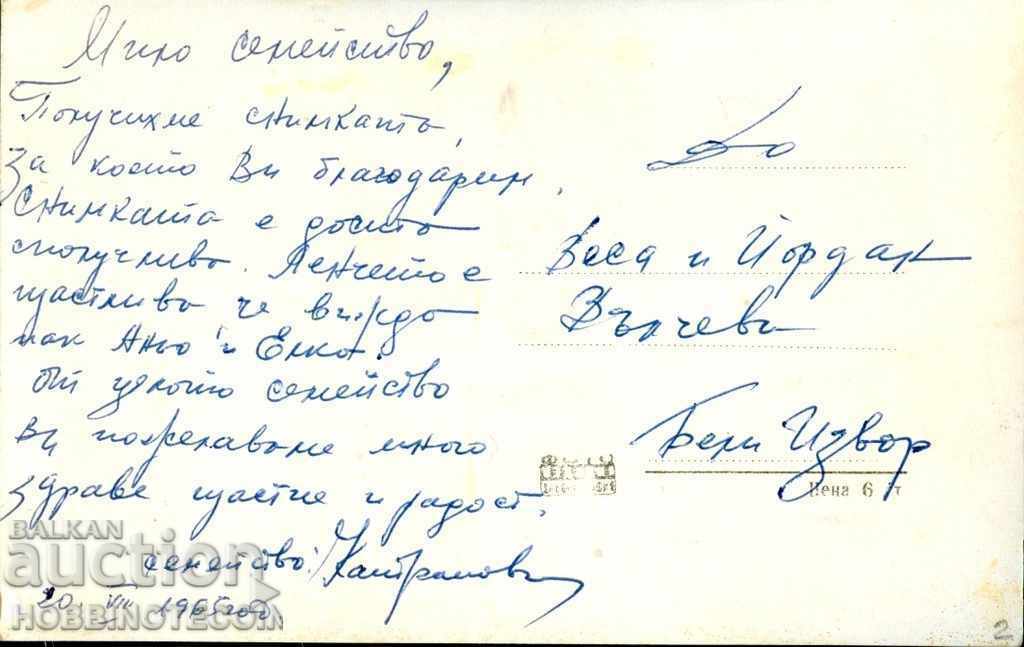 Мило семейство,
Получихме снимката,
за което Ви благодарим.
Снимката е доста
сполучлива. Ленчето е
щастлива, че вижда
пак Аньо и Елка.
От цялото семейство
ви пожелаваме много
здраве щастие и радост.
семейство: Катранови
20. VII 1965 год
До
Веса и Йордан
Вълчеви
Бели Извор
Цена 6 ст
BALKAN
auction
HOBBINOTECOM
2